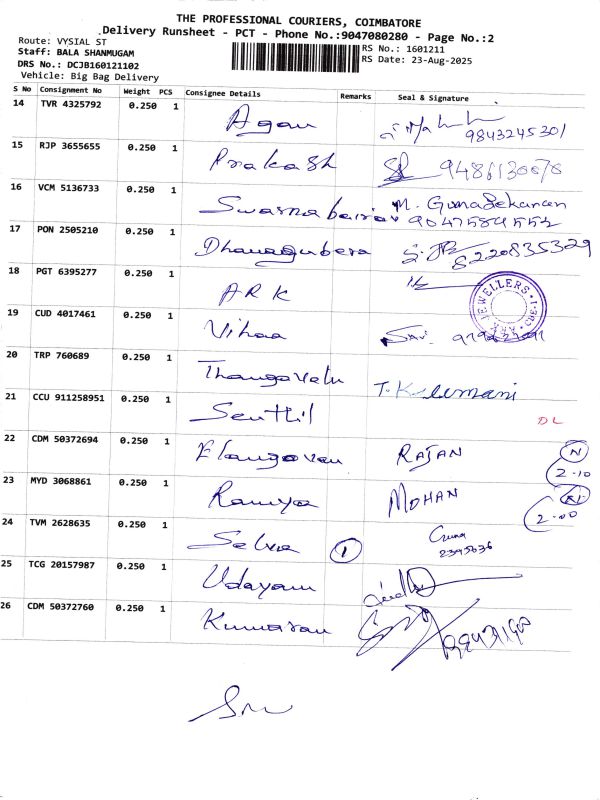 THE PROFESSIONAL COURIERS, COIMBATORE
Delivery Runsheet - PCT - Phone No.:9047080280 - Page No.:2
Route: VYSIAL ST
RS No.: 1601211
Staff: BALA SHANMUGAM
RS Date: 23-Aug-2025
DRS No.: DCJB160121102
Vehicle: Big Bag Delivery
S No Consignment No Weight PCS Consignee Details Remarks Seal & Signature
14 TVR 4325792 0.250 1 Agan 9843245301
15 RJP 3655655 0.250 1 Prakash
16 VCM 5136733 0.250 1 Swarna M. Gunasekaran
9047584552
17 PON 2505210 0.250 1 Dhanagubera 8220835329
18 PGT 6395277 0.250 1 ARK JEWELLERS ARK CBE-1
19 CUD 4017461 0.250 1 Vihaa
20 TRP 760689 0.250 1 Thangavelu
21 CCU 911258951 0.250 1 Senthil DL
22 CDM 50372694 0.250 1 Elangovan RAJAN N
2-10
23 MYD 3068861 0.250 1 Ramya MOHAN
2-00
24 TVM 2628635 0.250 1 Selva 1 Guna
25 TCG 20157987 0.250 1 Udayam
26 CDM 50372760 0.250 1 Kumaran